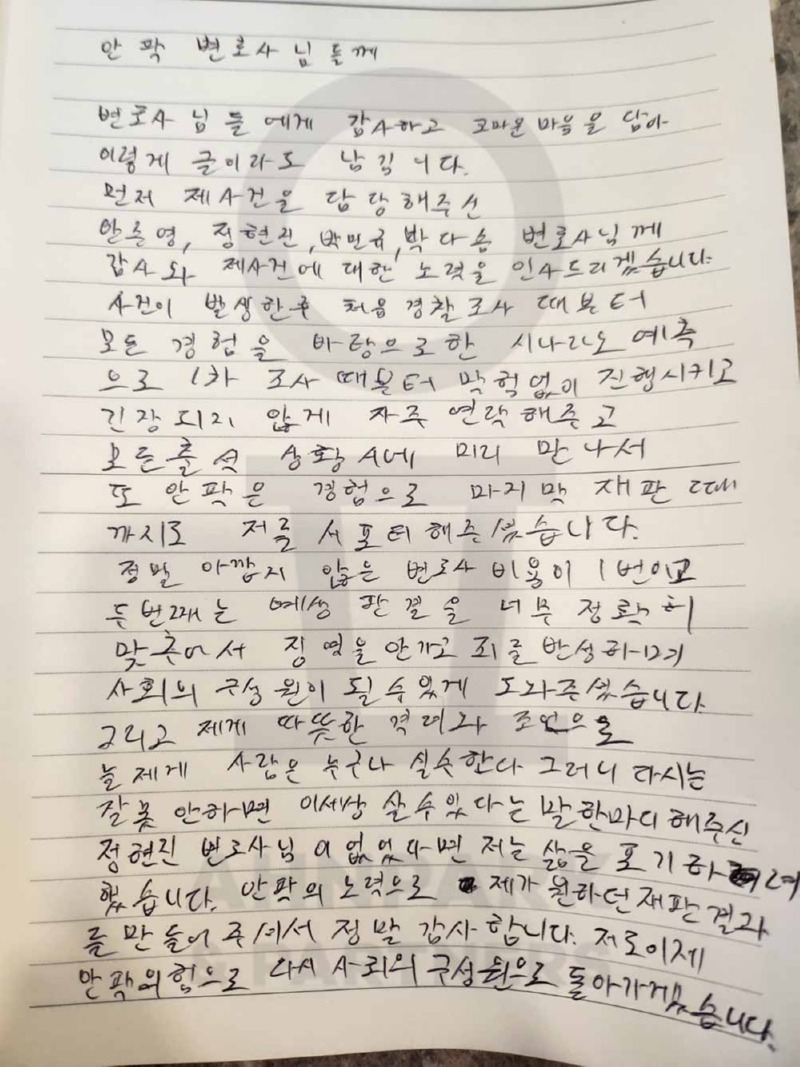 안팍 변호사님들께
변호사님들에게 감사하고 고마운마음을 담아
이렇게 글이라도 남깁니다.
먼저 제사건을 담당해주신
안준영, 정현진, 박민규, 박다솜 변호사님께
감사와 제사건에 대한 노력을 인사드리겠습니다.
사건이 발생한후 처음 경찰조사 때부터
모든 경험을 바탕으로한 시나리오 예측
으로 1차 조사때부터 막힘없이 진행시키고
긴장되지 않게 자주 연락해주고
모든출석 상황시에 미리 만나서
또 안팍은 경험으로 마지막 재판때
까지도 저를 서포터해주셨습니다.
정말 아깝지 않은 변호사 비용이 1번이고
두번째는 예상 판결을 너무 정확히
맞추어서 징역을 안가고 죄를 반성하며
사회의 구성원이 될수있게 도와주셨습니다.
그리고 제게 따뜻한 격려와 조언으로
늘제게 사람은 누구나 실수한다 그러니 다시는
잘못 안하면 이세상 살수있다는 말한마디 해주신
정현진 변호사님이 없었다면 저는 삶을 포기하려
했습니다. 안팍의 노력으로 제가 원하던재판결과
를 만들어 주셔서 정말 감사합니다. 저도이제
안팍의힘으로 다시 사회의 구성원으로 돌아가겠습니다.